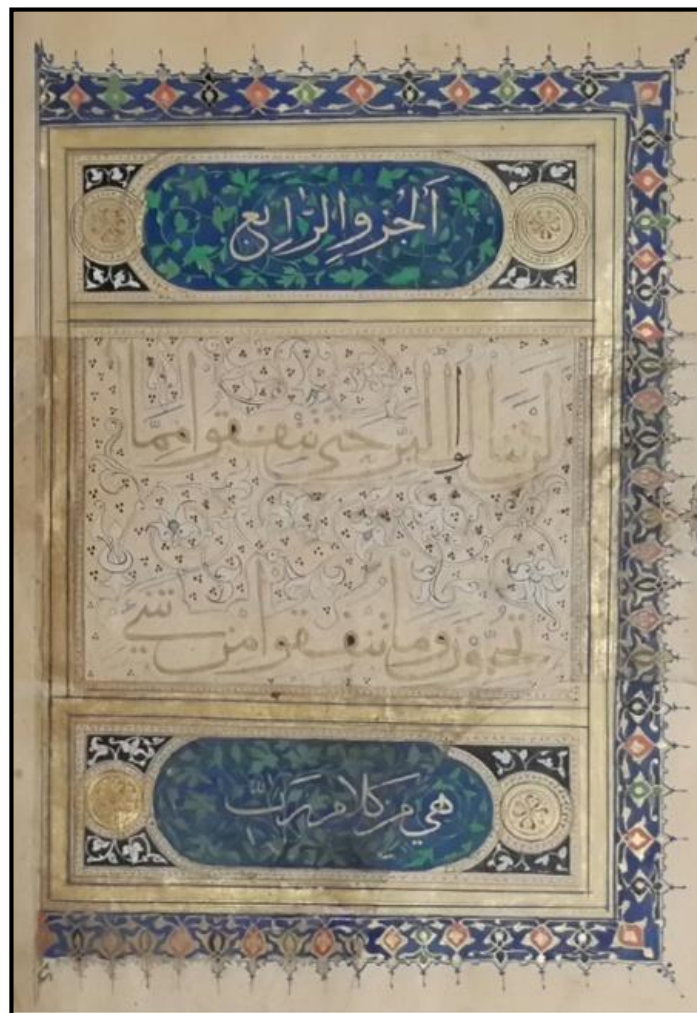 ألجزو الرابع
لن تنالوا البرَّ حتى تنفقوا ممَّا
تحبُّون وما تنفقوا من شيء
هي من كلام ربّ